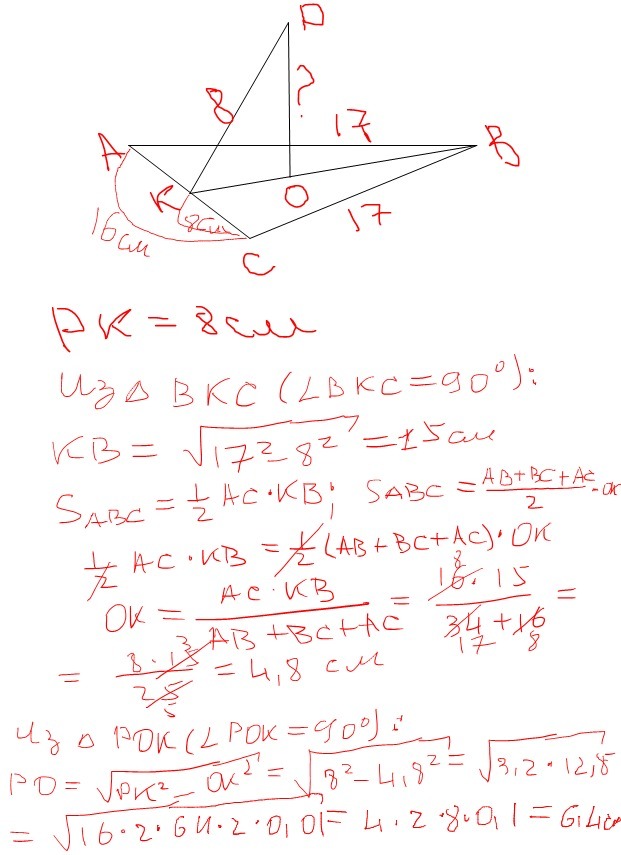 P
8
?
17
A
B
K
O
8см
17
16см
C
PK = 8см
Из △ BKC (∠BKC = 90°):
KB = √(17² - 8²) = 15 см
S_ABC = 1/2 AC · KB; S_ABC = (AB + BC + AC)/2 · OK
1/2 AC · KB = 1/2 (AB + BC + AC) · OK
OK = (AC · KB)/(AB + BC + AC) = (16 · 15)/(34 + 16) = 8 17 8
= (8 · 15)/25 = 4,8 см 3 5
Из △ POK (∠POK = 90°):
PO = √(PK² - OK²) = √(8² - 4,8²) = √(3,2 · 12,8)
= √(16 · 2 · 64 · 2 · 0,01) = 4 · 2 · 8 · 0,1 = 6,4см